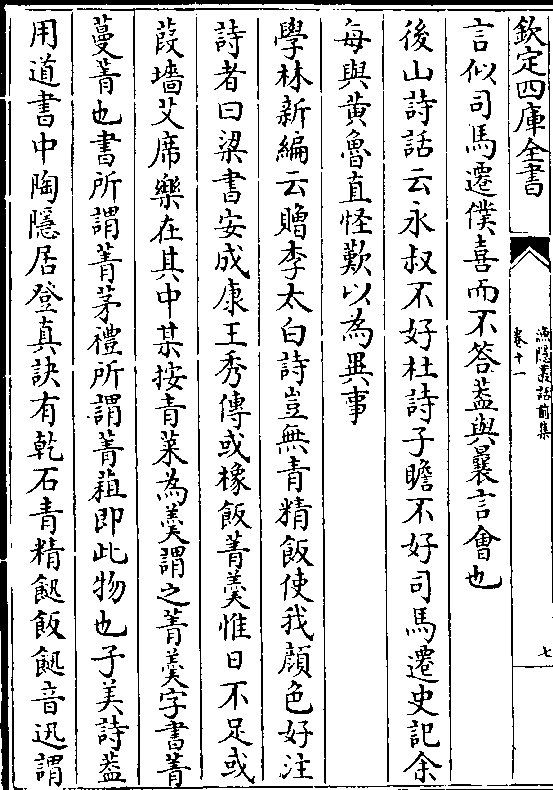 欽定四庫全書
漁隱叢話前集
卷十一
七
言似司馬遷僕喜而不答葢與曩言會也
後山詩話云永叔不好杜詩子瞻不好司馬遷史記余
每與黄魯直怪歎以為異事
學林新編云贈李太白詩豈無青精飯使我顔色好注
詩者曰梁書安成康王秀傳或橡飯菁羮惟日不足或
葭墻艾席樂在其中某按青菜為羮謂之菁羮字書菁
蔓菁也書所謂菁茅禮所謂菁葅即此物也子美詩葢
用道書中陶隱居登真訣有乾石青精䭀飯䭀音迅謂